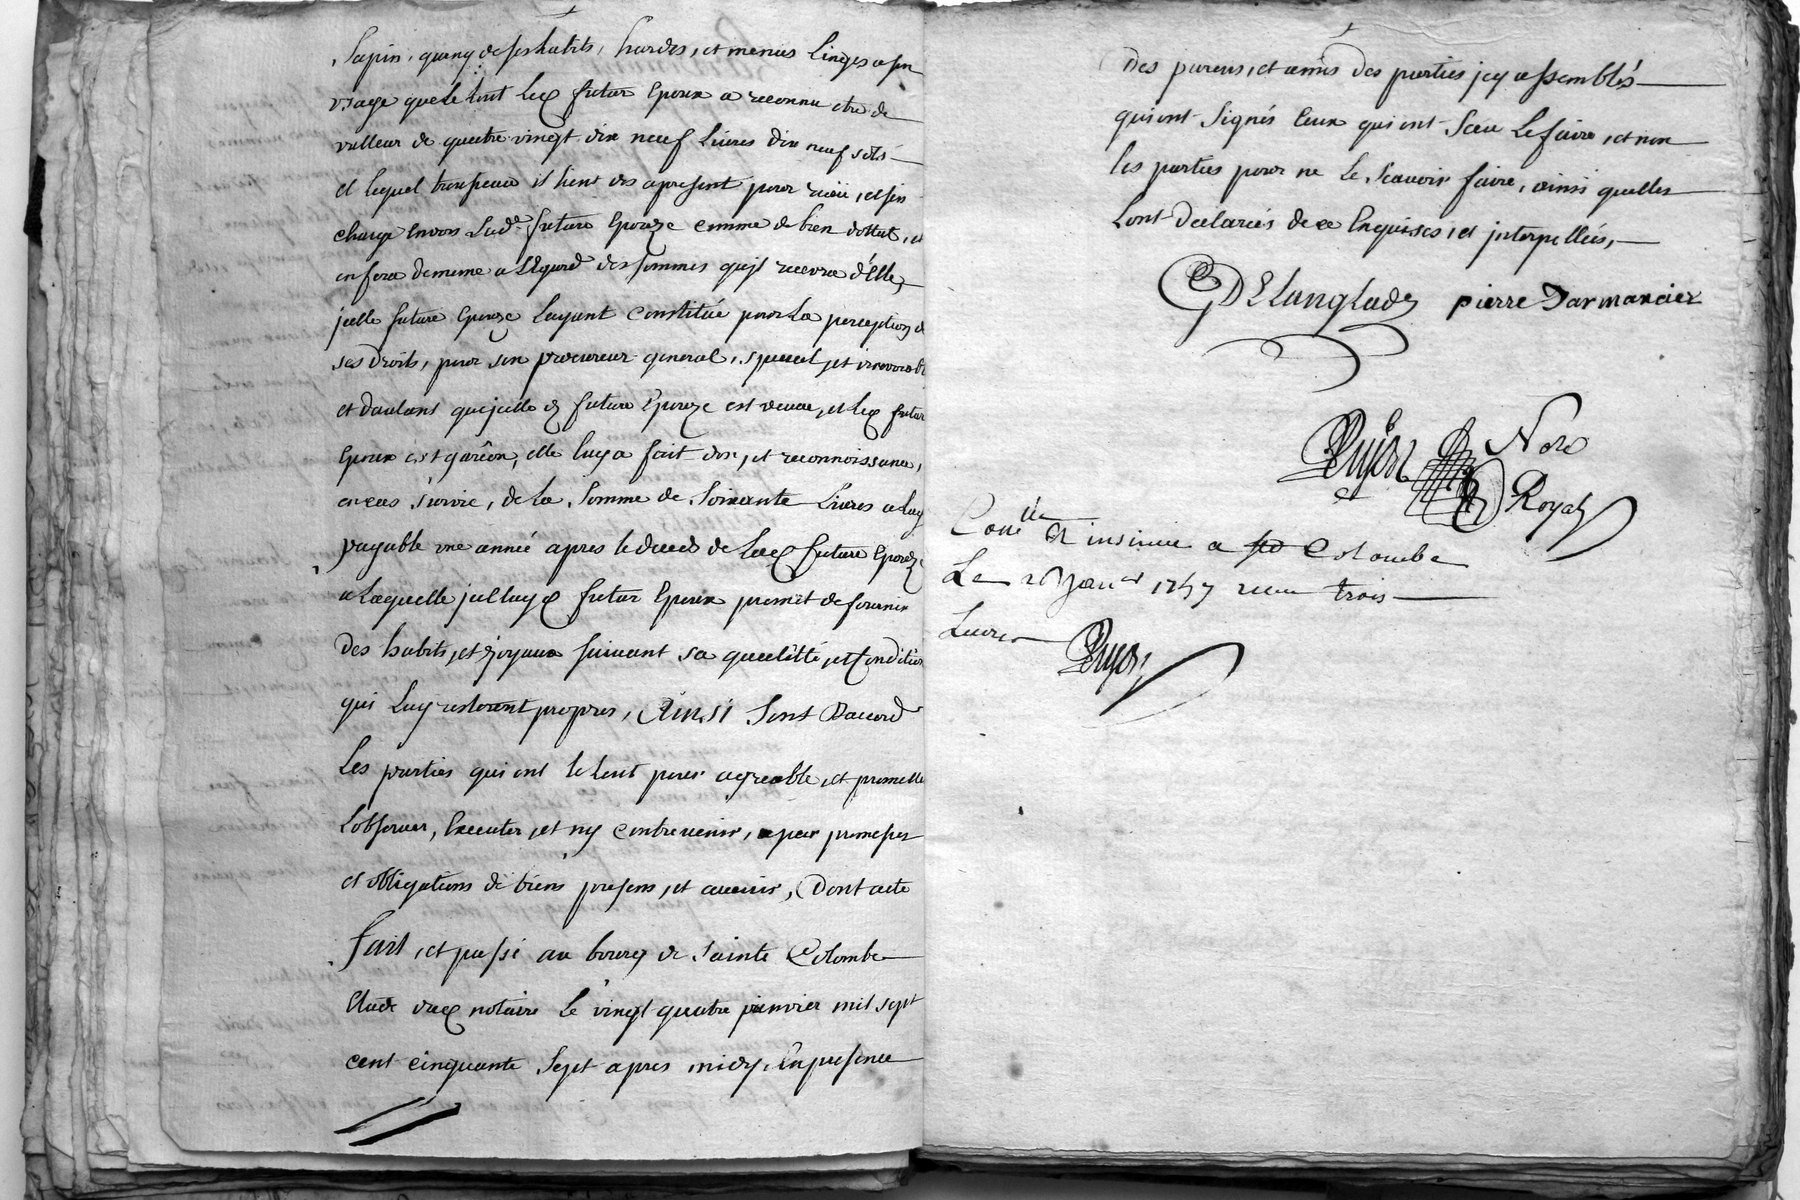 Sapin, quenq de ses habits, hardes, et menus linges a son
usage que le tout led futur Epoux a reconnu etre de
valleur de quatre vingt dix neuf Livres dix neuf sols
et lequel trousseau il tient des apresent pour reçu, et s'en
charge Envers Lade. future Epouze comme de bien dottal, et
en fera de meme a L'Egard des sommes qu'il recevra d'Elle,
jcelle future Epouze layant constitué pour La perception de
ses droits, pour son procureur general, special, et irrevocable
et dautant que jcelle d future Epouze est veuve, et led futur
Epoux est garçon, elle luy a fait don, et reconnoissance,
en cas survie, de La Somme de Soixante Livres a luy
payable une année apres le deceds de Lad future Epouze
a Laquelle jcelluy d futur Epoux promet de fournir
des habits, et joyaux suivant sa quallitté, et Condition
qui Luy resteront propres, Ainsi Sont Daccord
Les parties qui ont le tout pour agreable, et promette
Lobserver, Executer, et ny contrevenir, a peur promesses
et obligations de biens presens, et avenir, Dont acte
fait, et passé au bourg de Sainte Colombe
Etude dud notaire Le vingt quatre janvier mil sept
cent cinquante Sept apres midy, En presence
des parens, et amis des parties jcy assemblés
qui ont Signés Ceux qui ont Sceu Le faire, et non
les parties pour ne le Scavoir faire, ainsi quelles
Lont declarées de ce Enquises, et jnterpellées,
DElanglade pierre Darmancier
Dujon Nore
Royal
Conlle et insinué a Ste Colombe
Le 26 Janer 1757 reçu trois
Livres
Dujon